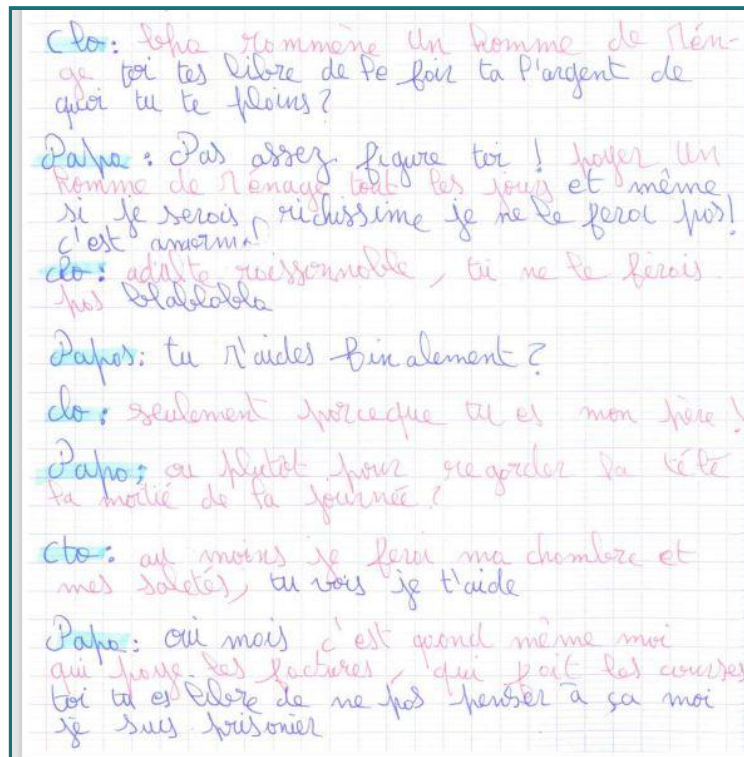 Clo: bha rammène un homme de Mén-
ge toi tes libre de le fair ta l'argent de
quoi tu te plains?
Papa: Pas assez figure toi! payer un
homme de Ménage tout les jours et même
si je serais richissime je ne le ferai pas!
c'est anorma
clo: adulte raissonnable, tu ne le ferais
pas blablabla
Papas: tu m'aides finalement?
clo: seulement parceque tu es mon père!
Papa: ou plutôt pour regarder la télé
la moitié de ta journée?
clo: au moins je ferai ma chambre et
mes saletés, tu vois je t'aide
Papa: oui mais c'est quand même moi
qui paye les factures, qui fait les courses
toi tu es libre de ne pas penser à ça moi
je suis prisonier